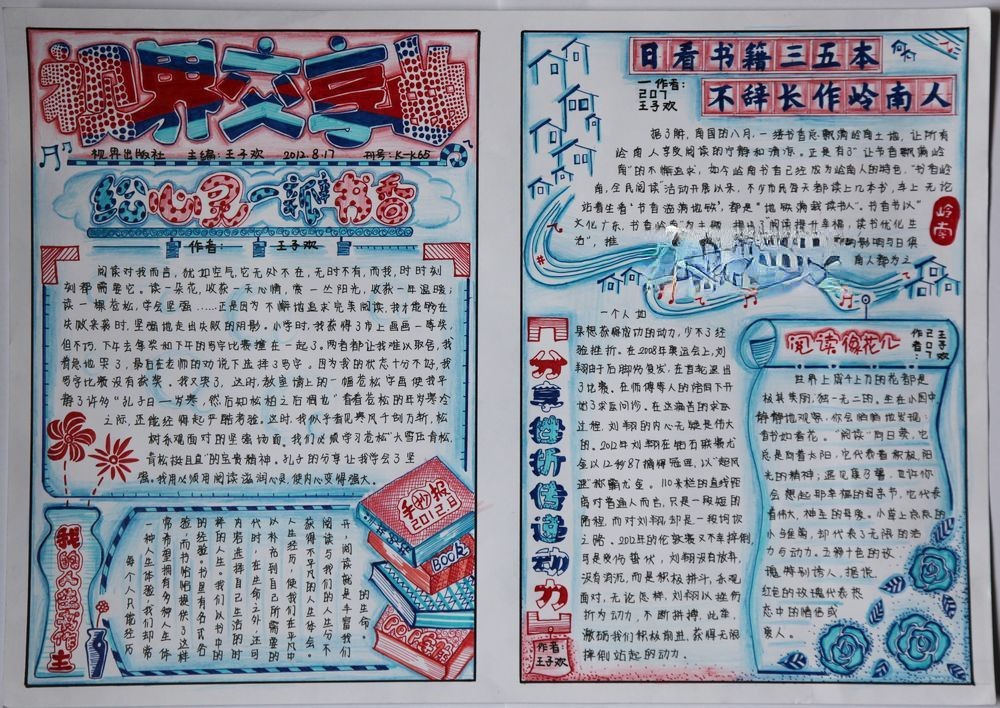 视界交享
视界出版社 主编:王子欢 2012.8.17 刊号:K-K65
给心灵一瓣书香
作者: 王子欢
阅读对我而言,犹如空气,它无处不在,无时不有,而我,时时刻
刻都需要它。读一朵花,收获一天心情,赏一丛阳光,收获一年温暖;
读一棵苍松,学会坚强……正是因为不懈地追求完美阅读,我才能够在
失败来袭时,坚强地走出失败的阴影。小学时,我获得了市上画画一等奖,
但不巧,下午去领奖和下午的写字比赛撞在一起了。两者都让我难以取舍,我
着急地哭了,最后在老师的劝说下选择了写字。因为我的状态十分不好,我
写字比赛没有获奖。我又哭了,这时,教室墙上的一幅苍松字画使我平
静了许多"孔子曰:岁寒,然后知松柏之后凋也"看着苍松的年岁寒冷
之际,还能经得起严酷考验。这时,我似乎看见寒风千刨万斩,松
树乐观面对的坚强场面。我们必须学习苍松"大雪压青松,
青松挺且直"的宝贵精神。孔子的分享让我学会了坚
强。我用必须用阅读滋润心灵,使内心变得强大。
我的人生我作主
每个人只能经历
一种人生体验,我们却常
常希望拥有多种人生体
验,书籍阅读提供了这样
的经验。书里有各式各
样的人生,我们从书中的
内容选择自己生活的时
代时,在生命之外,还可
以补充到自己所需要的
人生经历,使我们在平凡中
获得不平凡的人生体会。
阅读与我们的人生分不
开,阅读就是丰富我们
的生命。
手抄报
2012.8
BOOK
POP字体
日看书籍三五本
不辞长作岭南人
作者:
207
王子欢
据了解,周国的八月,一缕书香总飘满岭南土地,让所有
岭南人享受阅读的宁静和清凉。正是有了"让书香飘满岭
南"的不懈追求,如今岭南书香已经成为岭南人的特色,"书香岭
南,全民阅读"活动开展以来,不少市民每天都读上几本书,车上无论
站着坐着"书香溢满地铁",都是"地铁满载读书人"。书香节以"
文化广东,书香岭南"为主题,提出了"阅读提升幸福,读书优化生
活",推
影响与日俱
南人都为之
岭南
分享挫折传递动力
作者:
王子欢
一个人如
果想获得成功的动力,少不了经
验挫折。在2008年奥运会上,刘
翔由于后脚伤复发,在首轮退出
了比赛。在师傅等人的陪同下开
始了求医问诊。在这痛苦的求医
过程,刘翔的内心无疑是伟大
的。2012年刘翔在钻石联赛尤
金以12秒87摘得冠军,以"超风
速"称霸尤金。110米栏的直线距
离对普通人而言,只是一段短的
路程,而对刘翔,却是一根饲饮
之路。2012年的伦敦赛又不幸摔倒,
耳是疲伤蛰伏,刘翔没有放弃,
没有消沉,而是积极拼斗,乐观
面对,无论怎样,刘翔以挫伤
折为动力,不断拼搏,此举
激励我们积极前进,获得无限
摔倒站起的动力。
阅读像花儿
作者: 207 王子欢
世界上万千上万的花都是
极其美丽,独一无二的。坐在小园中
静静地观察,你会暗暗地发现:
看书如看花。"阅读"向日葵,它
总是向着太阳,它代表着积极,阳
光的精神;遇见康乃馨,也许你
会想起那幸福的母亲节,它代表
着伟大,神圣的母爱。小草上点点的
小雏菊,却代表了无限的活
力与动力。五颜十色的玫
瑰特别诱人,据说,
红色的玫瑰代表热
恋中的情侣或
爱人。